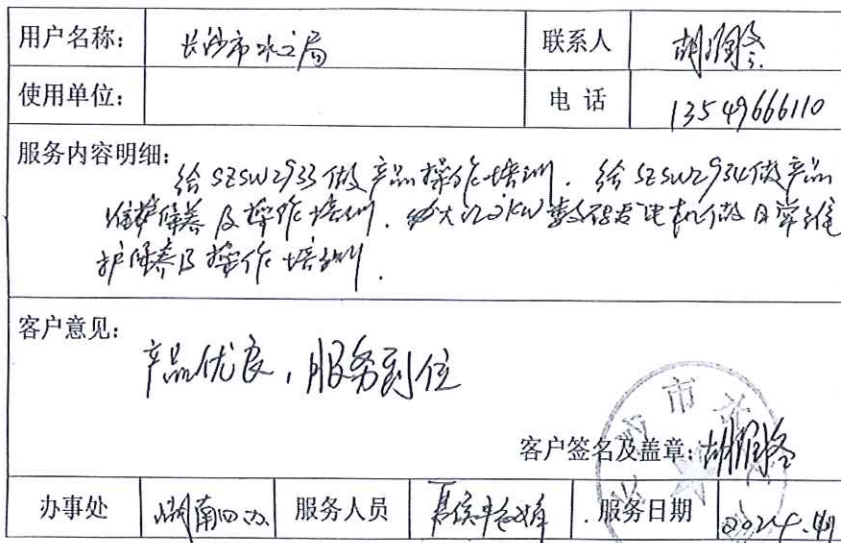 用户名称： 长沙市水务局 联系人 胡
使用单位： 电 话 13549666110
服务内容明细：
给SZSW2933做产品操作培训．给SZSW2934做产品
维护保养及操作培训．2kW数码发电机做日常维
护保养及操作培训．
客户意见：
产品优良，服务到位
市
客户签名及盖章：胡
办事处 湖南四办 服务人员 夏侯 服务日期